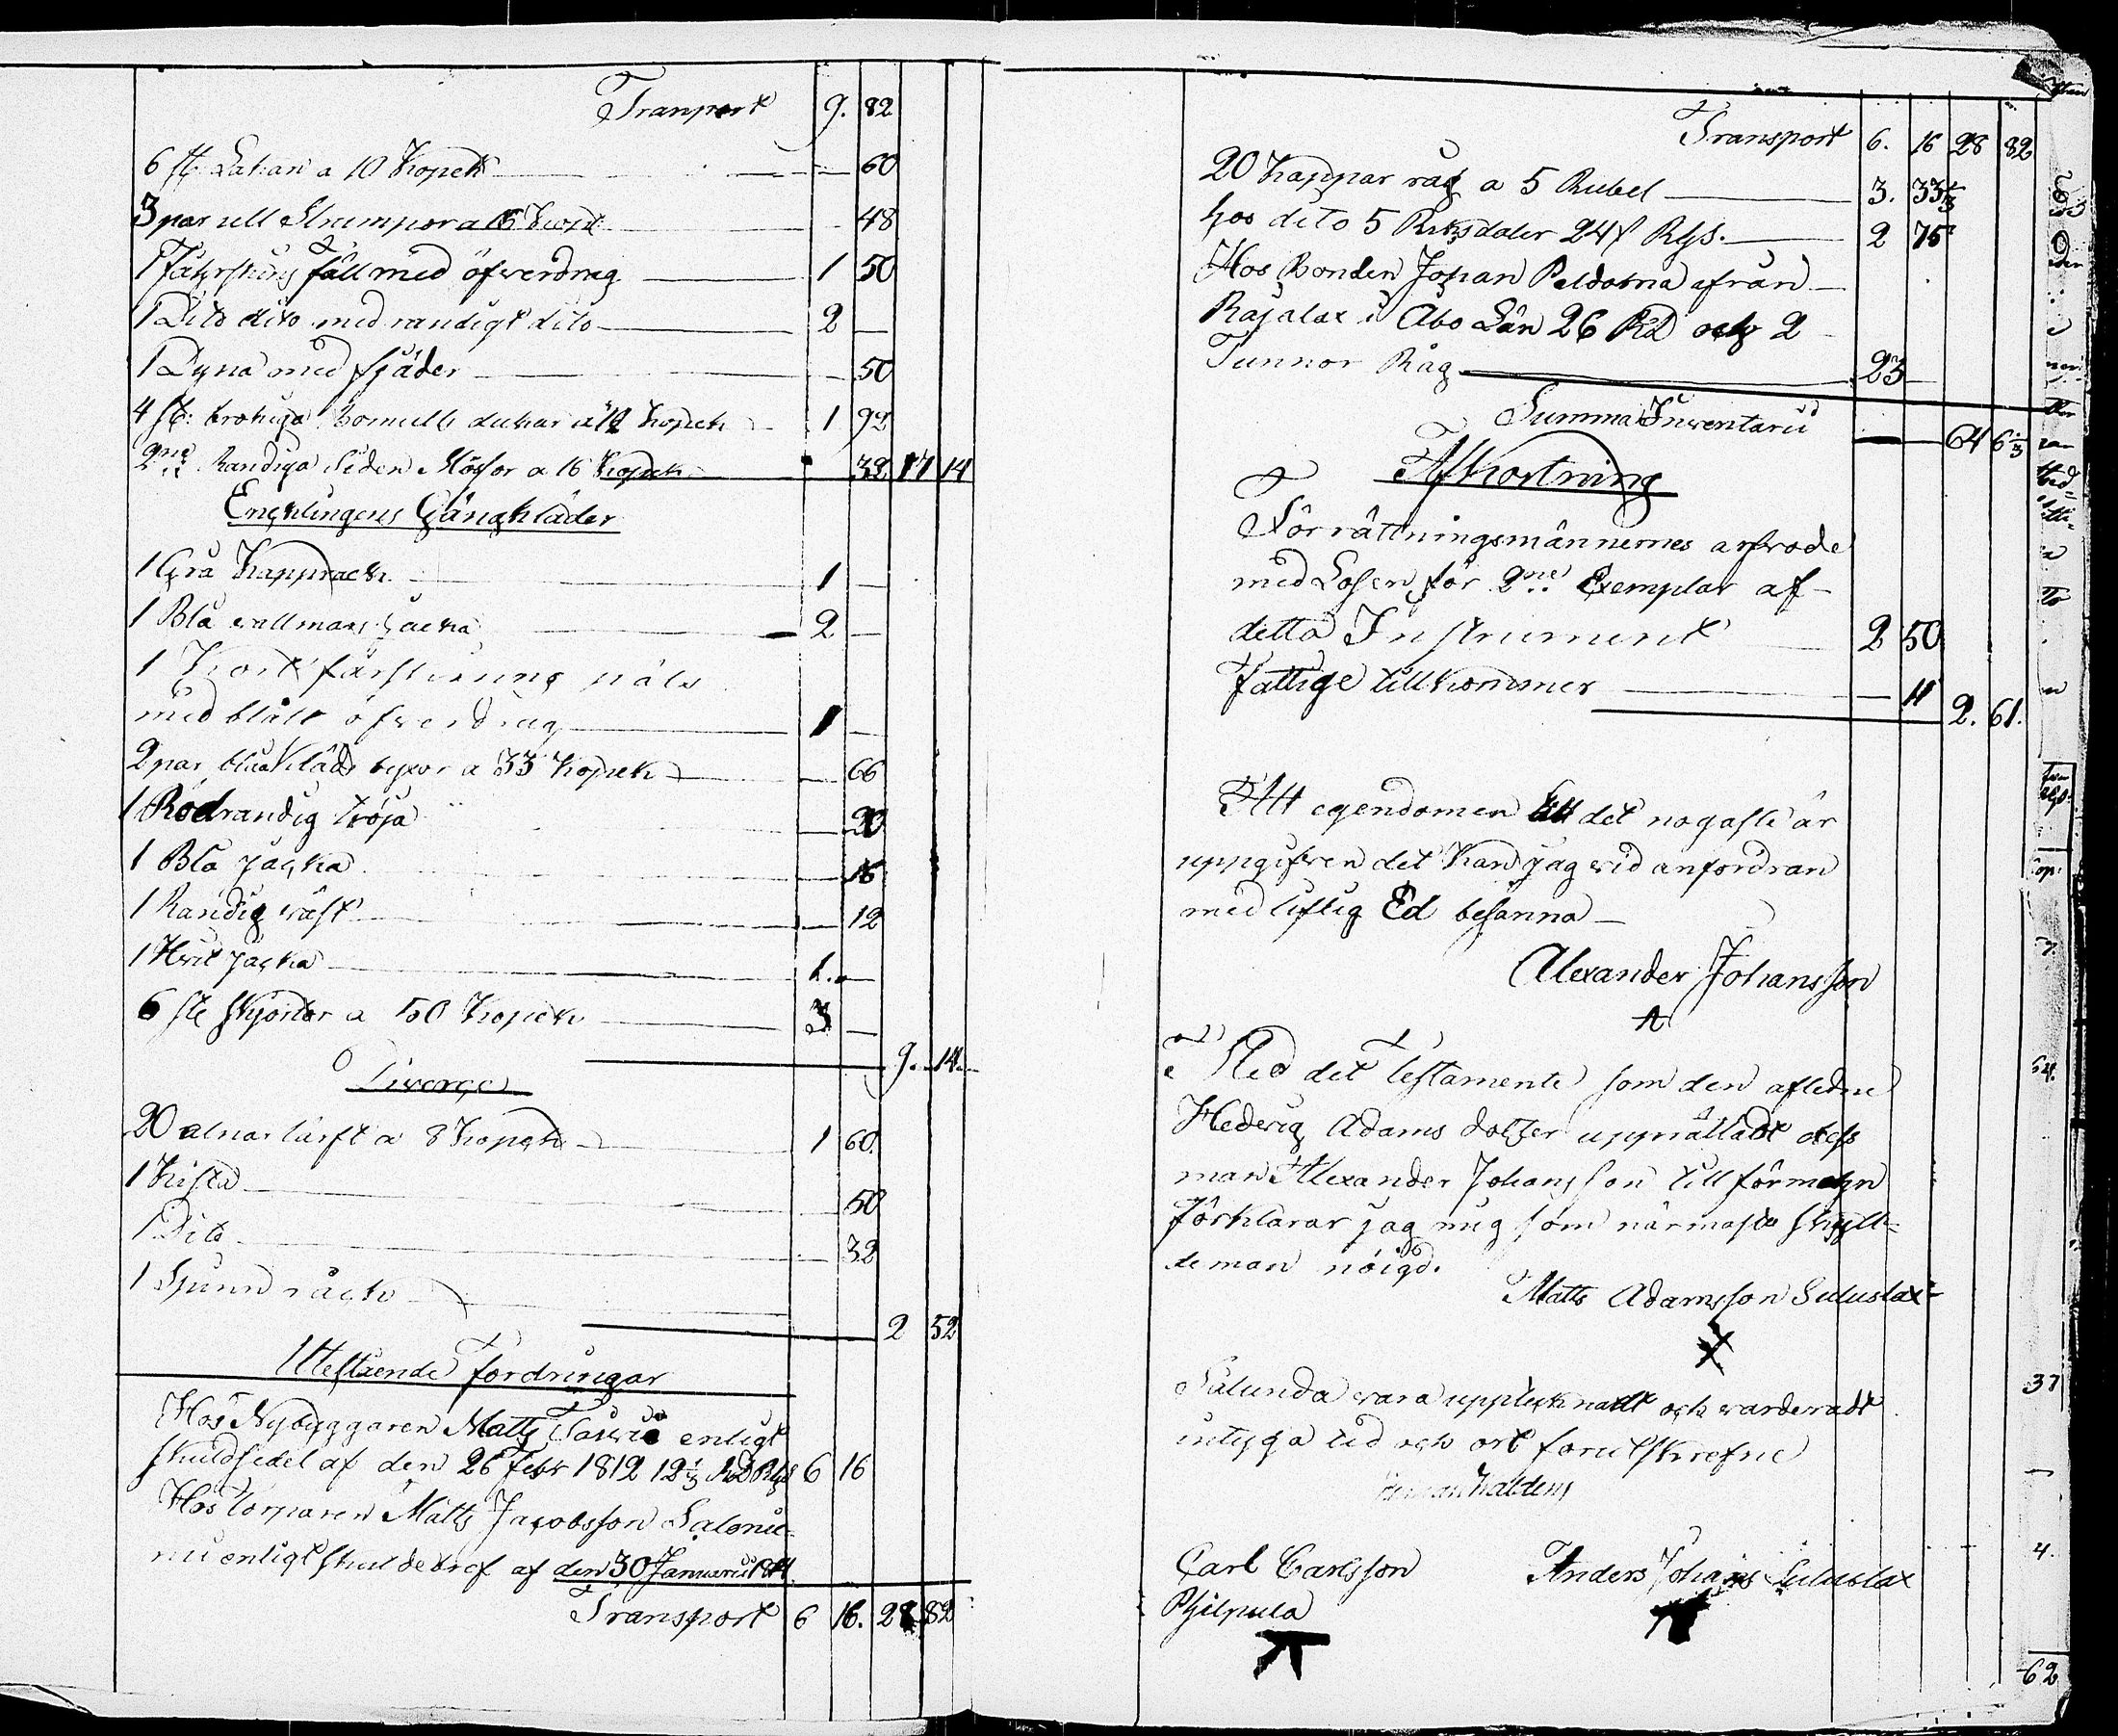 Tranport 9. 82
6 st Lakan a 10 Kopek — 60
3 par ull Strumpor a 16 Kopek — 48
1 fårskins fäll med öfverdrag 1 50
1 Dito dito med randigt dito 2 —
1 Dyna med fjäder — 50
4 st: brokuga bomulls dukar a Kopek 1 92
2ne Randiga Siden Mössor a 16 Kopek 32 17 14
Enchlingens Gångkläder
1 Grå Kapprack 1 —
1 Blå vallmars jacka 2 —
1 Kort fårskinns päls
med blått öfverdrag 1 —
2 par blåa Kläds byxor a 33 Kopek — 66
1 Rödrandig tröja — 20
1 Blå Jacka — 16
1 Randig väst — 12
1 Hvit Jacka 1. —
6 ste Skjortor a 50 Kopek 3 —
9. 14.
Diverse
20 alnar lärft a 8 Kopek 1 60.
1 Kista — 50
1 Dito — 32
1 Spinnråck
2 52
Utestående fordringar
Hos Nybyggaren Matts enligt
skuldsedel af den 26 Febr 1812 12 1/3 RD Rgs 6 16
Hos Torparen Matts Jacobsson
enligt skuldebref af den 30 Januarii
Transport 6 16. 28 82
Transport 6. 16 28 82
20 Kappar råg a 5 Rubel 3. 33 1/3
hos dito 5 Riksdaler 24 s Rgs. 2 75
Hos Bonden Johan Peldoma ifrån
Rajalax i Åbo Län 26 RD och 2
Tunnor Råg 23 —
Summa Inventarii — 64 6 1/3
Afkortning
Förrättningsmännernes arfvode
med Lösen för 2ne Exemplar af
detta Instrument 2 50
Fattige tillkommer — 11 2. 61.
Att egendomen till det nogaste är
uppgifven det kan jag vid anfordran
med liflig Ed besanna
Alexander Johansson
Med det Testamente som den aflidne
Hedevig Adams dotter upprättadt dess
man Alexander Johansson till förmohn
förklarar jag mig som närmaste skyll=
deman nöigd.
Matts Adamsson Siluslax
Sålunda vara uppteknadt och värderadt
intyga tid och ort förutskrefne
Carl Carlsson Anders Johans Siluslax
Philpula